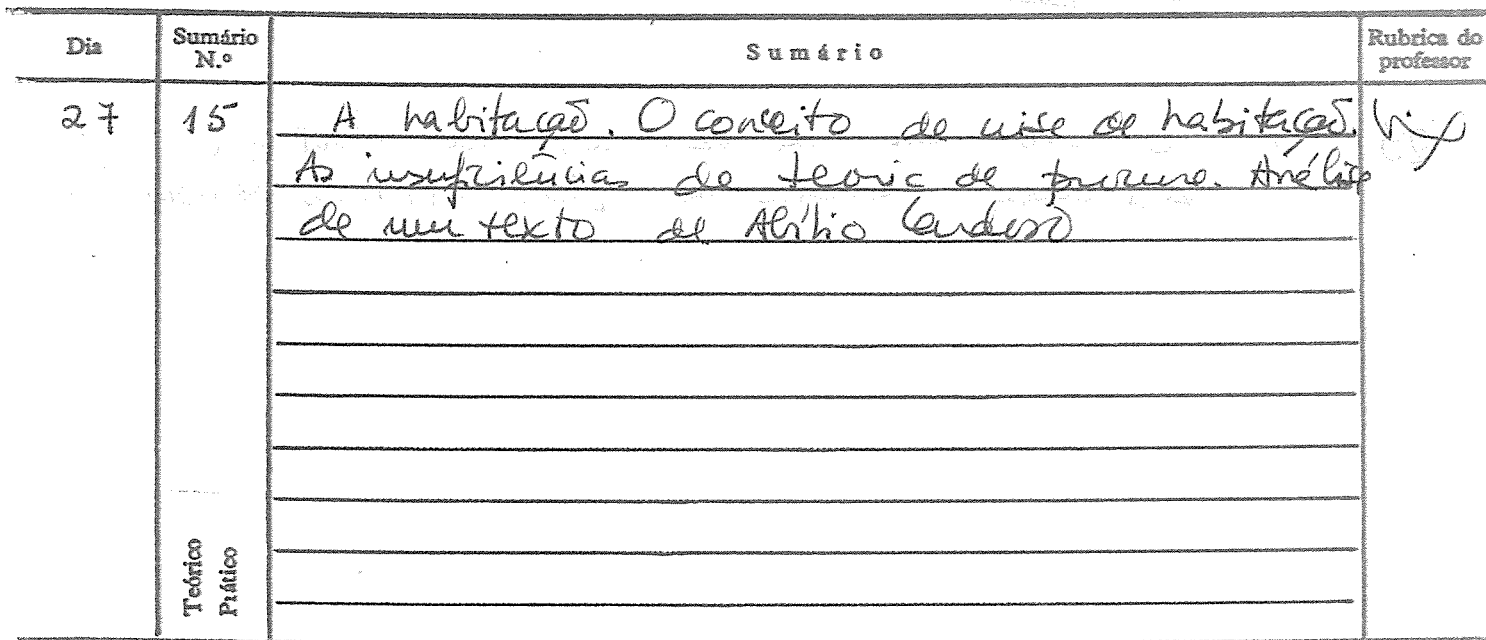 Dia Sumário N.º Sumário Rubrica do professor
27 15 A habitação. O conceito de crise de habitação.
As insuficiências da teoria da procura. Análise
de um texto de Abílio Cardoso
Teórico
Prático